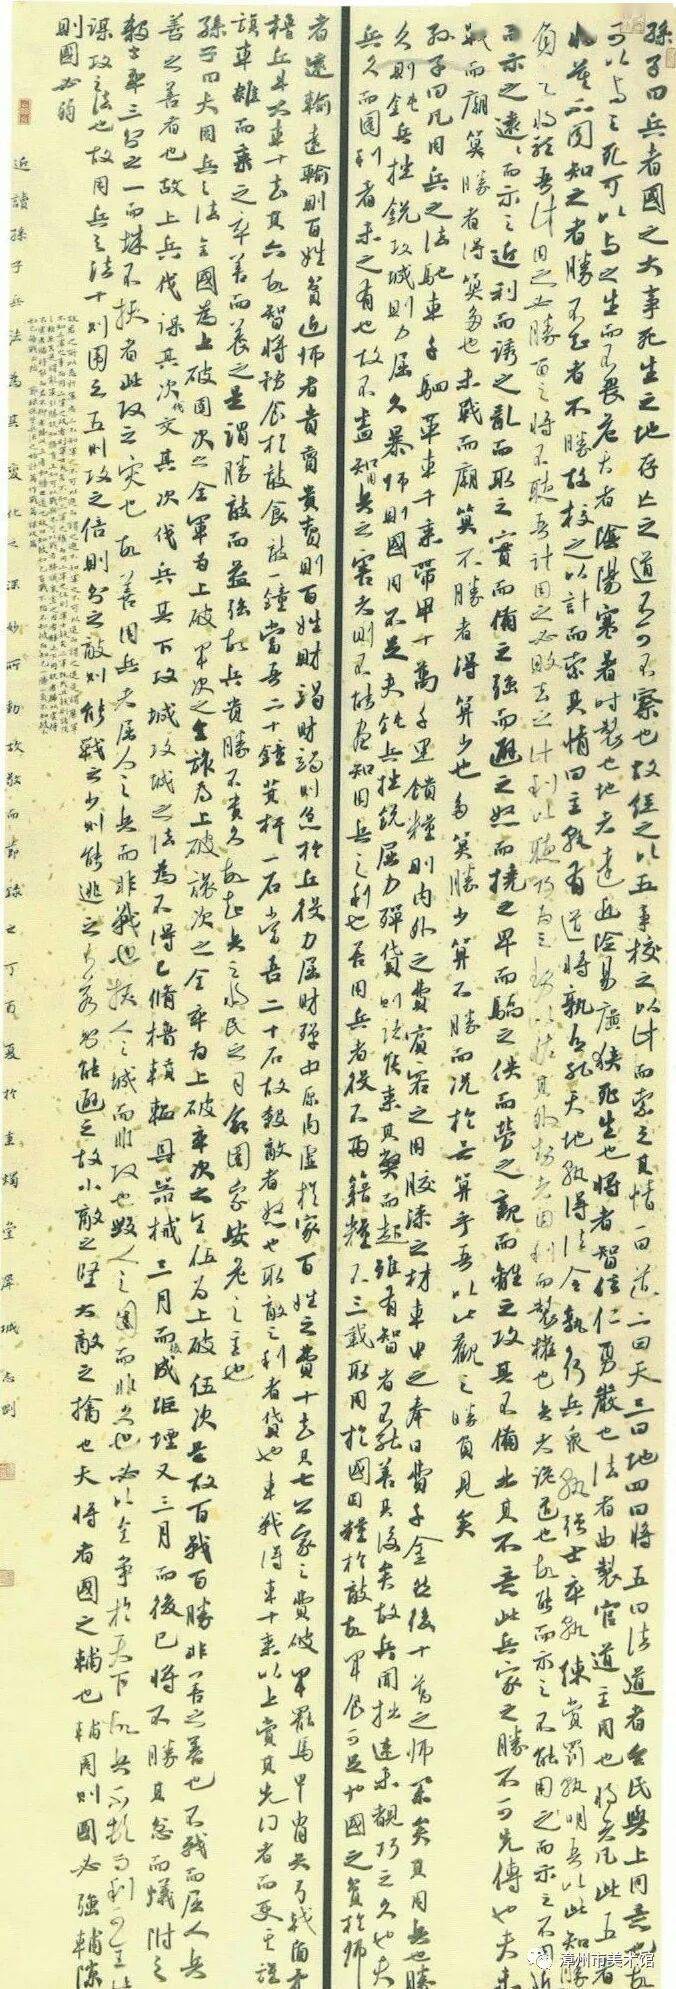 孫子曰兵者國之大事死生之地存亡之道不可不察也故經之以五事校之以計而索其情一曰道二曰天三曰地四曰將五曰法道者令民與上同意也故
可以與之死可以與之生而不畏危天者陰陽寒暑時製也地者遠近險易廣狹死生也將者智信仁勇嚴也法者曲製官道主用也凡此五者
將莫不聞知之者勝不知者不勝故校之以計而索其情曰主孰有道將孰有能天地孰得法令孰行兵眾孰強士卒孰練賞罰孰明吾以此知勝
負矣將聽吾計用之必勝留之將不聽吾計用之必敗去之計利以聽乃為之勢以佐其外勢者因利而製權也兵者詭道也故能而示之不能用之而示之不用近
而示之遠遠而示之近利而誘之亂而取之實而備之強而避之怒而撓之卑而驕之佚而勞之親而離之攻其不備出其不意此兵家之勝不可先傳也夫未
戰而廟算勝者得算多也未戰而廟算不勝者得算少也多算勝少算不勝而況於無算乎吾以此觀之勝負見矣
孫子曰凡用兵之法馳車千駟革車千乘帶甲十萬千里饋糧則內外之費賓客之用膠漆之材車甲之奉日費千金然後十萬之師舉矣其用兵也勝
久則鈍兵挫銳攻城則力屈久暴師則國用不足夫鈍兵挫銳屈力殫貨則諸侯乘其弊而起雖有智者不能善其後矣故兵聞拙速未覩巧之久也夫
兵久而國利者未之有也故不盡知用兵之害者則不能盡知用兵之利也善用兵者役不再籍糧不三載取用於國因糧於敵故軍食可足也國之貧於師
者遠輸遠輸則百姓貧近師者貴賣貴賣則百姓財竭財竭則急於丘役力屈財殫中原內虛於家百姓之費十去其七公家之費破軍罷馬甲冑矢弓戟盾矛
櫓丘牛大車十去其六故智將務食於敵食敵一鐘當吾二十鐘萁杆一石當吾二十石故殺敵者怒也取敵之利者貨也車戰得車十乘以上賞其先得者而更其旌
旗車雜而乘之卒善而養之是謂勝敵而益強故兵貴勝不貴久故知兵之將民之司命國家安危之主也
孫子曰夫用兵之法全國為上破國次之全軍為上破軍次之全旅為上破旅次之全卒為上破卒次之全伍為上破伍次之是故百戰百勝非善之善也不戰而屈人兵
善之善者也故上兵伐謀其次伐交其次伐兵其下攻城攻城之法為不得已脩櫓轒轀具器械三月而後成距堙又三月而後已將不勝其忿而蟻附之
殺士卒三分之一而城不拔者此攻之災也故善用兵者屈人之兵而非戰也拔人之城而非攻也毀人之國而非久也必以全爭於天下故兵不頓而利可全此
謀攻之法也故用兵之法十則圍之五則攻之倍則分之敵則能戰之少則能逃之不若則能避之故小敵之堅大敵之擒也夫將者國之輔也輔周則國必強輔隙
則國必弱
近讀孫子兵法為其變化之深妙所動故敬而節錄之丁酉夏於
漳州市美术馆